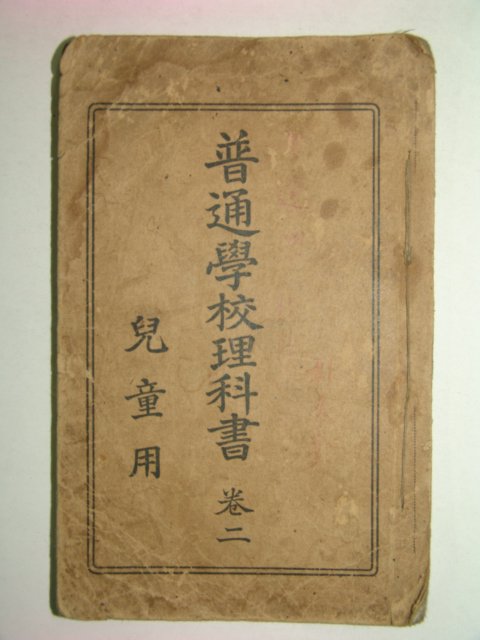 普通學校理科書 卷二
兒童用